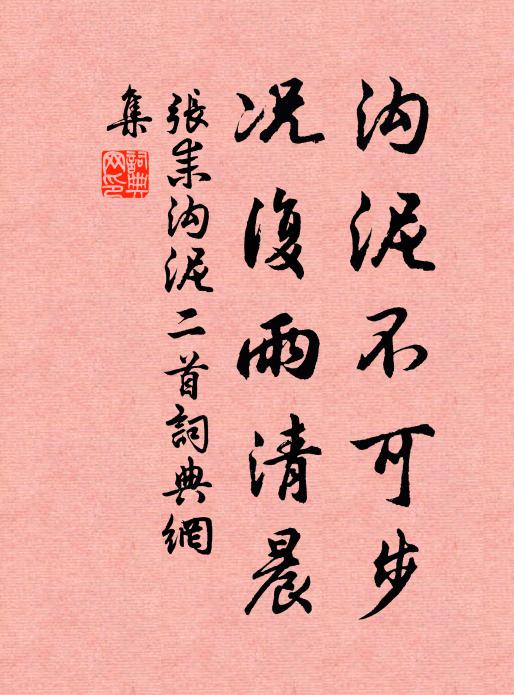 沟泥不可步
况復雨清晨
張耒沟泥二首詞典網
集
詞典
网印